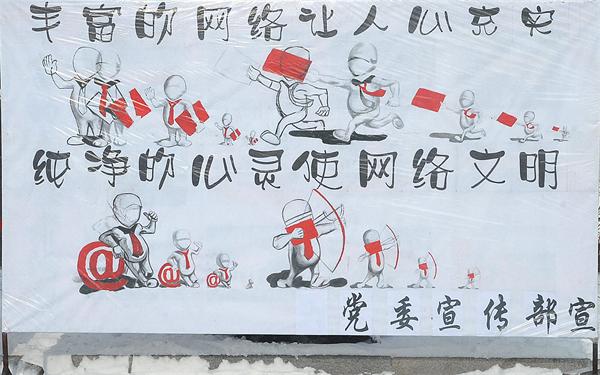 丰富的网络让人心充实
@ @ @
纯净的心灵使网络文明
党委宣传部宣